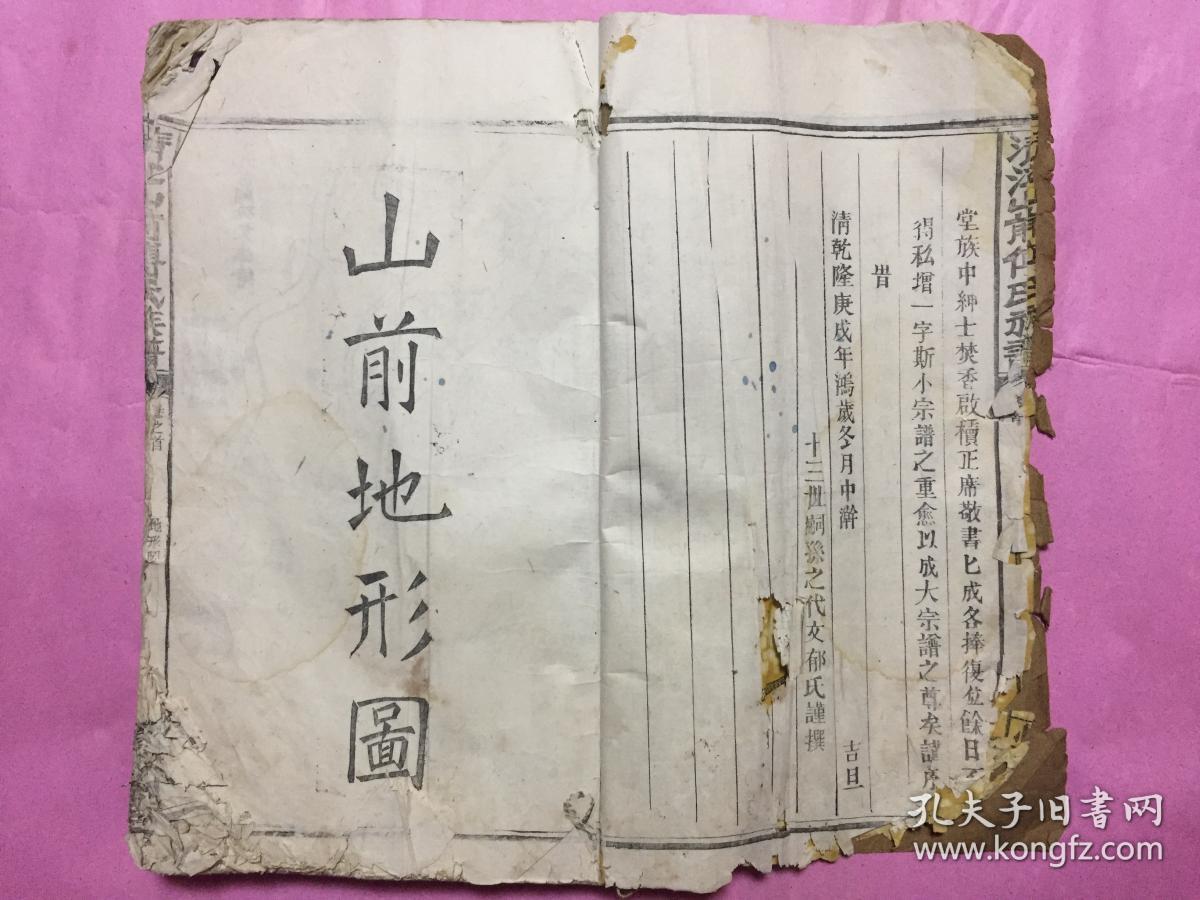 堂族中紳士焚香啟櫝正席敬書匕成各捧復位餘日不
得私增一字斯小宗譜之重愈以成大宗譜之尊矣謹序
旹
清乾隆庚戌年鴻歲冬月中澣
吉旦
十三世嗣孫之代文郁氏謹撰
山前地形圖
卷之首
地形圖
孔夫子旧书网
www.kongfz.com